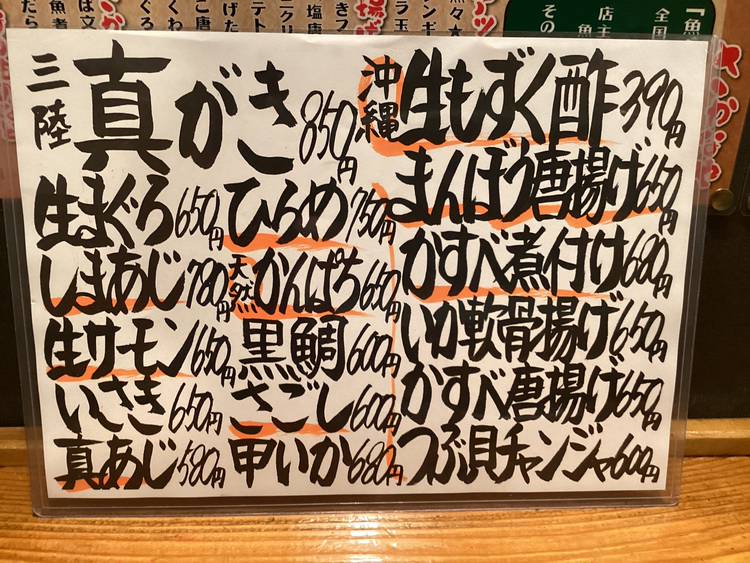 三陸 真がき 850円
生まぐろ 650円
しまあじ 780円
生サーモン 650円
いさき 650円
真あじ 580円
ひらめ 750円
天然 かんぱち 650円
黒鯛 600円
さごし 600円
甲いか 680円
沖縄 生もずく酢 390円
まんぼう唐揚げ 650円
かすべ煮付け 680円
いか軟骨揚げ 650円
かすべ唐揚げ 650円
つぶ貝チャンジャ 600円